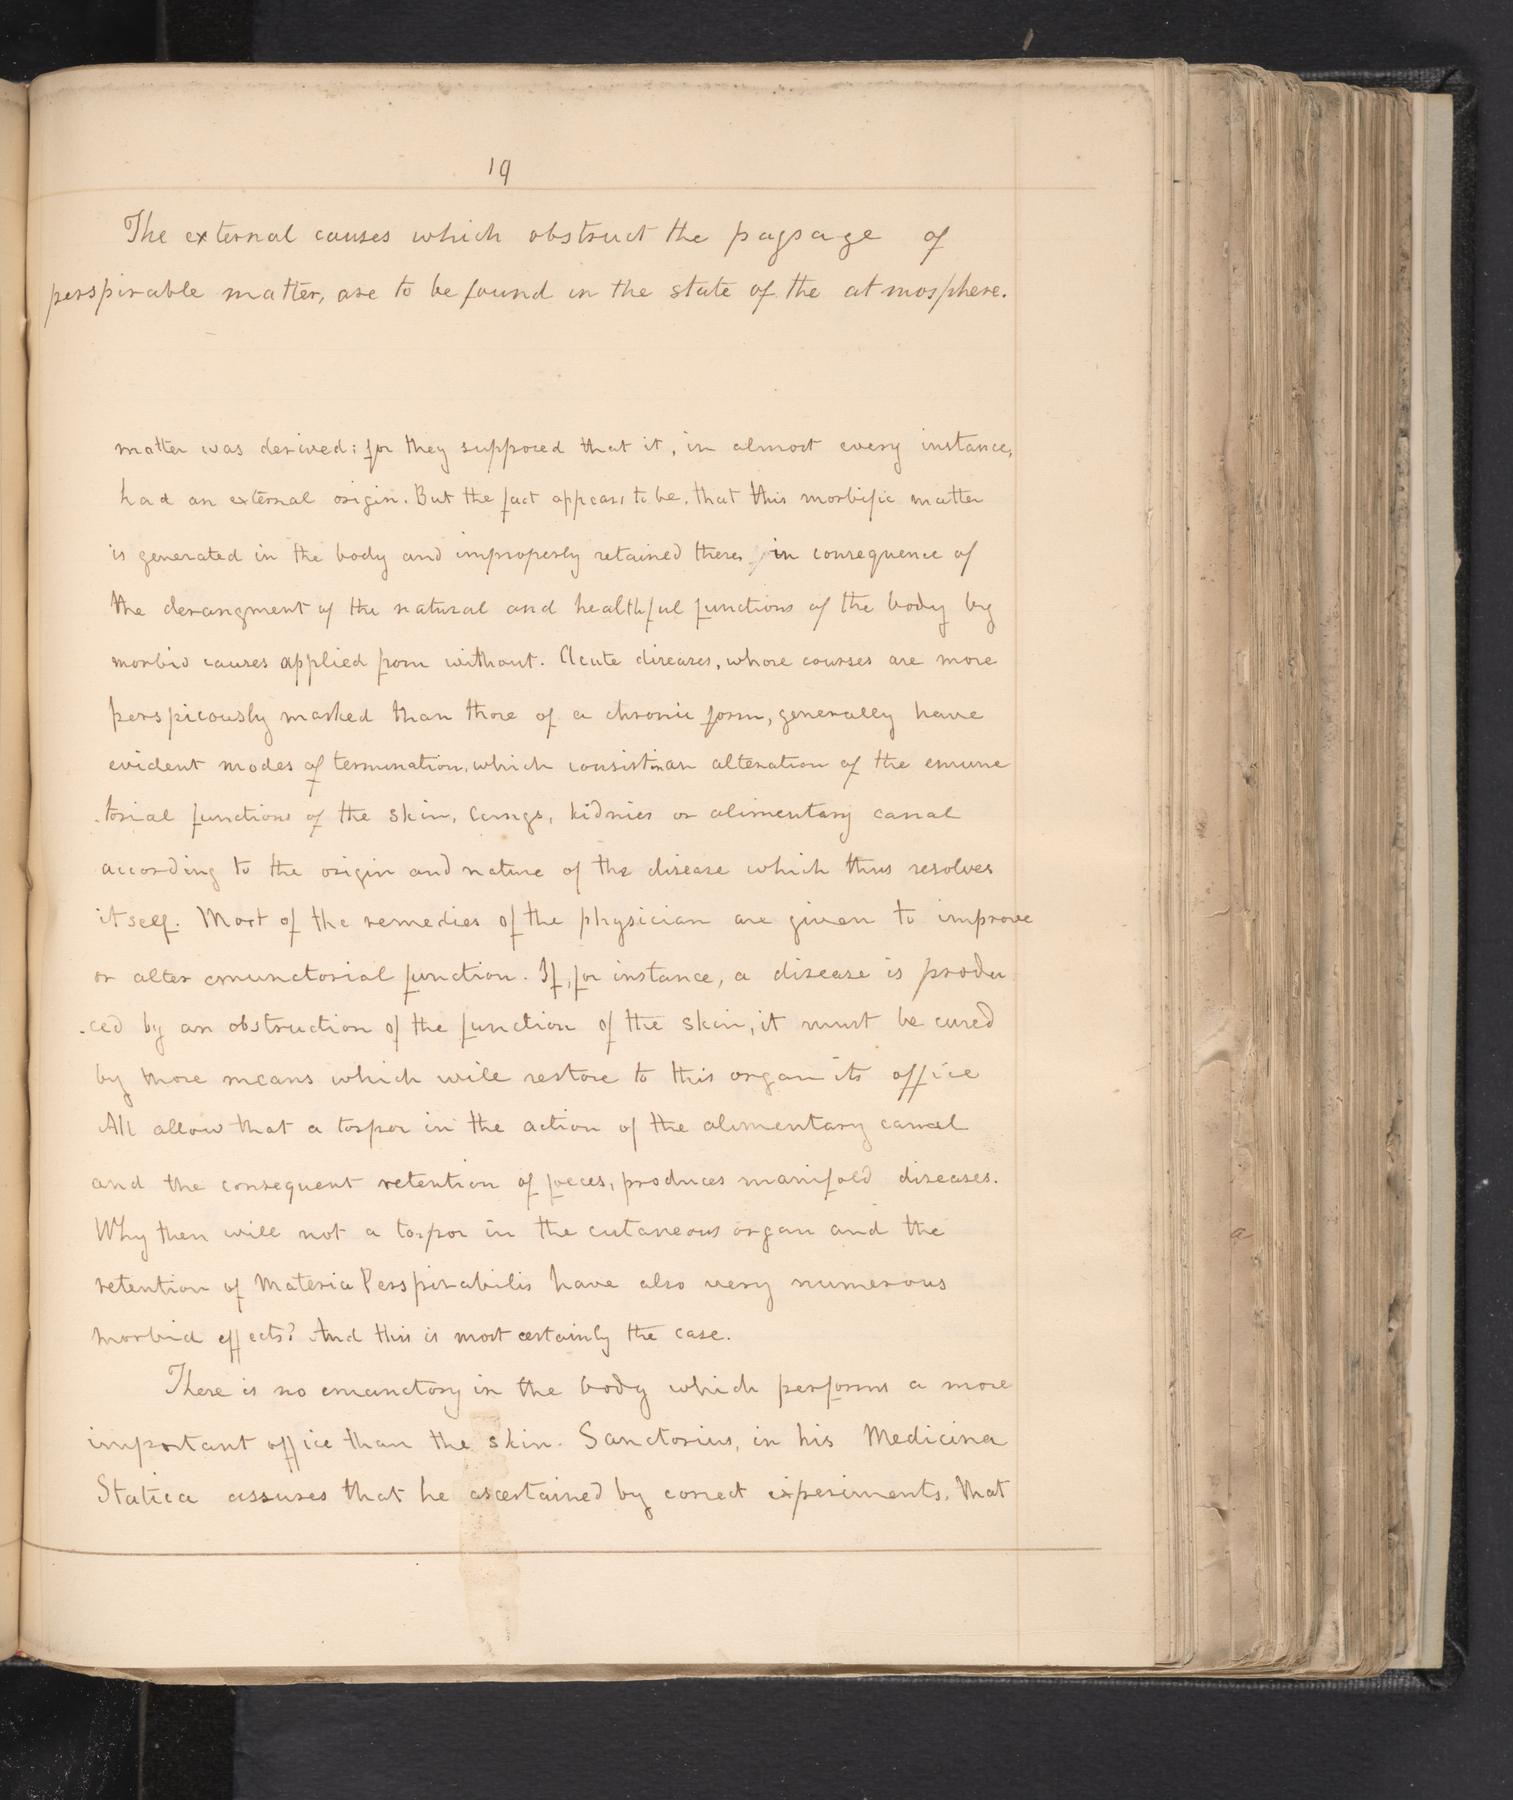 19
The external causes which obstruct the passage of
perspirable matter, are to be found in the state of the atmosphere.
matter was derived: for they supposed that it, in almost every instance,
had an external origin. But the fact appears to be, that this morbific matter
is generated in the body and improperly retained there, in consequence of
the derangment of the natural and healthful functions of the body by
morbid causes applied from without. Acute diseases, whose courses are more
perspicously marked than those of a chronic form, generally have
evident modes of termination, which consist in an alteration of the emunc
-torial functions of the skin, lungs, kidnies or alimentary canal
according to the origin and nature of the disease which thus resolves
itself. Most of the remedies of the physician are given to improve
or alter emunctorial function. If, for instance, a disease is produ
-ced by an obstruction of the function of the skin, it must be cured
by those means which will restore to this organ its office
All allow that a torpor in the action of the alimentary canal
and the consequent retention of foeces, produces manifold diseases.
Why then will not a torpor in the cutaneous organ and the
retention of Materia Perspirabilis have also very numerous
morbid effects? And this is most certainly the case.
There is no emunctory in the body which performs a more
important office than the skin. Sanctorius, in his Medicina
Statica assures that he ascertained by correct experiments, that
a